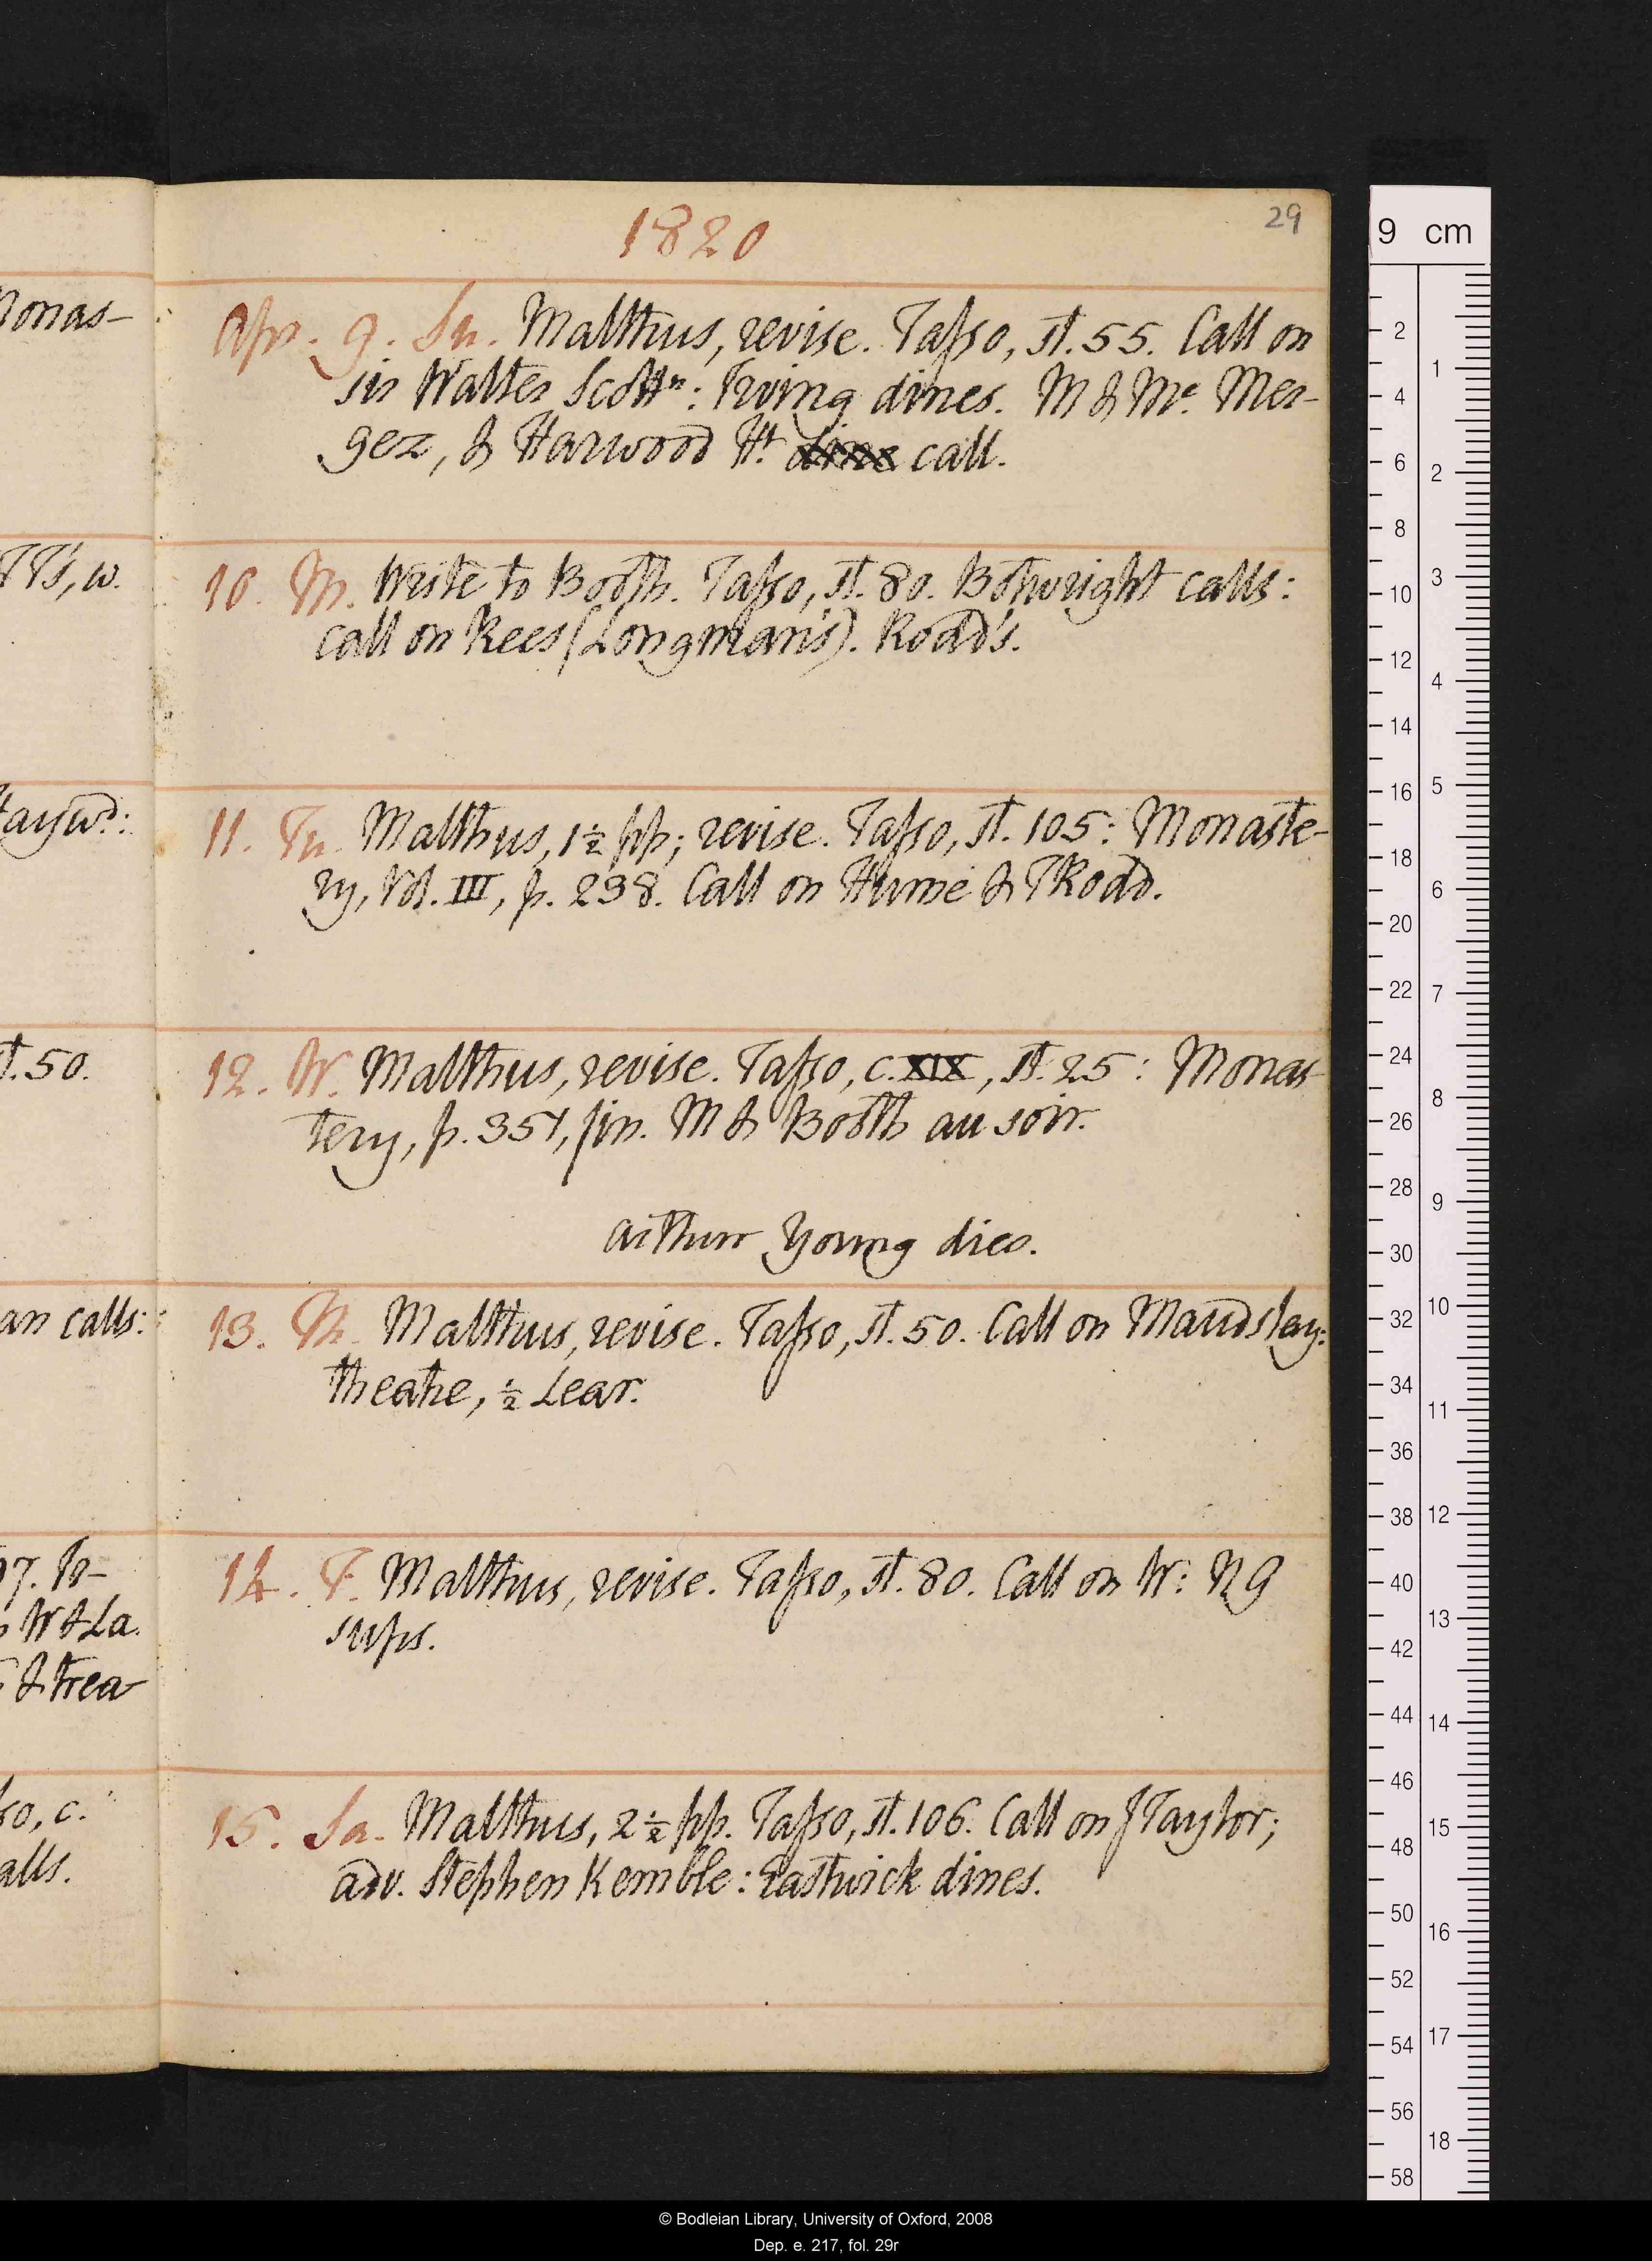 1820
29
Apr. 9. Su. Malthus, revise. Tasso, st. 55. Call on
sir Walter Scott n: Irving dines. M & Me. Mer-
gez, & Harwood Ht. dine call.
10. M. Write to Booth. Tasso, st. 80. Bothwright calls:
call on Rees (Longman's). Rodd's.
11. Tu. Malthus, 1½ pp; revise. Tasso, st. 105: Monaste-
ry, Vol. III, p. 238. Call on Hume & TRodd.
12. W. Malthus, revise. Tasso, c. XIX, st. 25: Monas
tery, p. 351, fin. M & Booth au soir.
Arthur Young dies.
13. Th. Malthus, revise. Tasso, st. 50. Call on Maudslay:
theatre, ½ Lear.
14. F. Malthus, revise. Tasso, st. 80. Call on W: NG
sups.
15. Sa. Malthus, 2½ pp. Tasso, st. 106. Call on JTaylor;
adv. Stephen Kemble: Eastwick dines.
Monas-
TT's, w.
Haywd:
st. 50.
an calls:
W & La.
& trea-
so, c.
alls.
9 cm
2
4
6
8
10
12
14
16
18
20
22
24
26
28
30
32
34
36
38
40
42
44
46
48
50
52
54
56
58
1
2
3
4
5
6
7
8
9
10
11
12
13
14
15
16
17
18
© Bodleian Library, University of Oxford, 2008
Dep. e. 217, fol. 29r